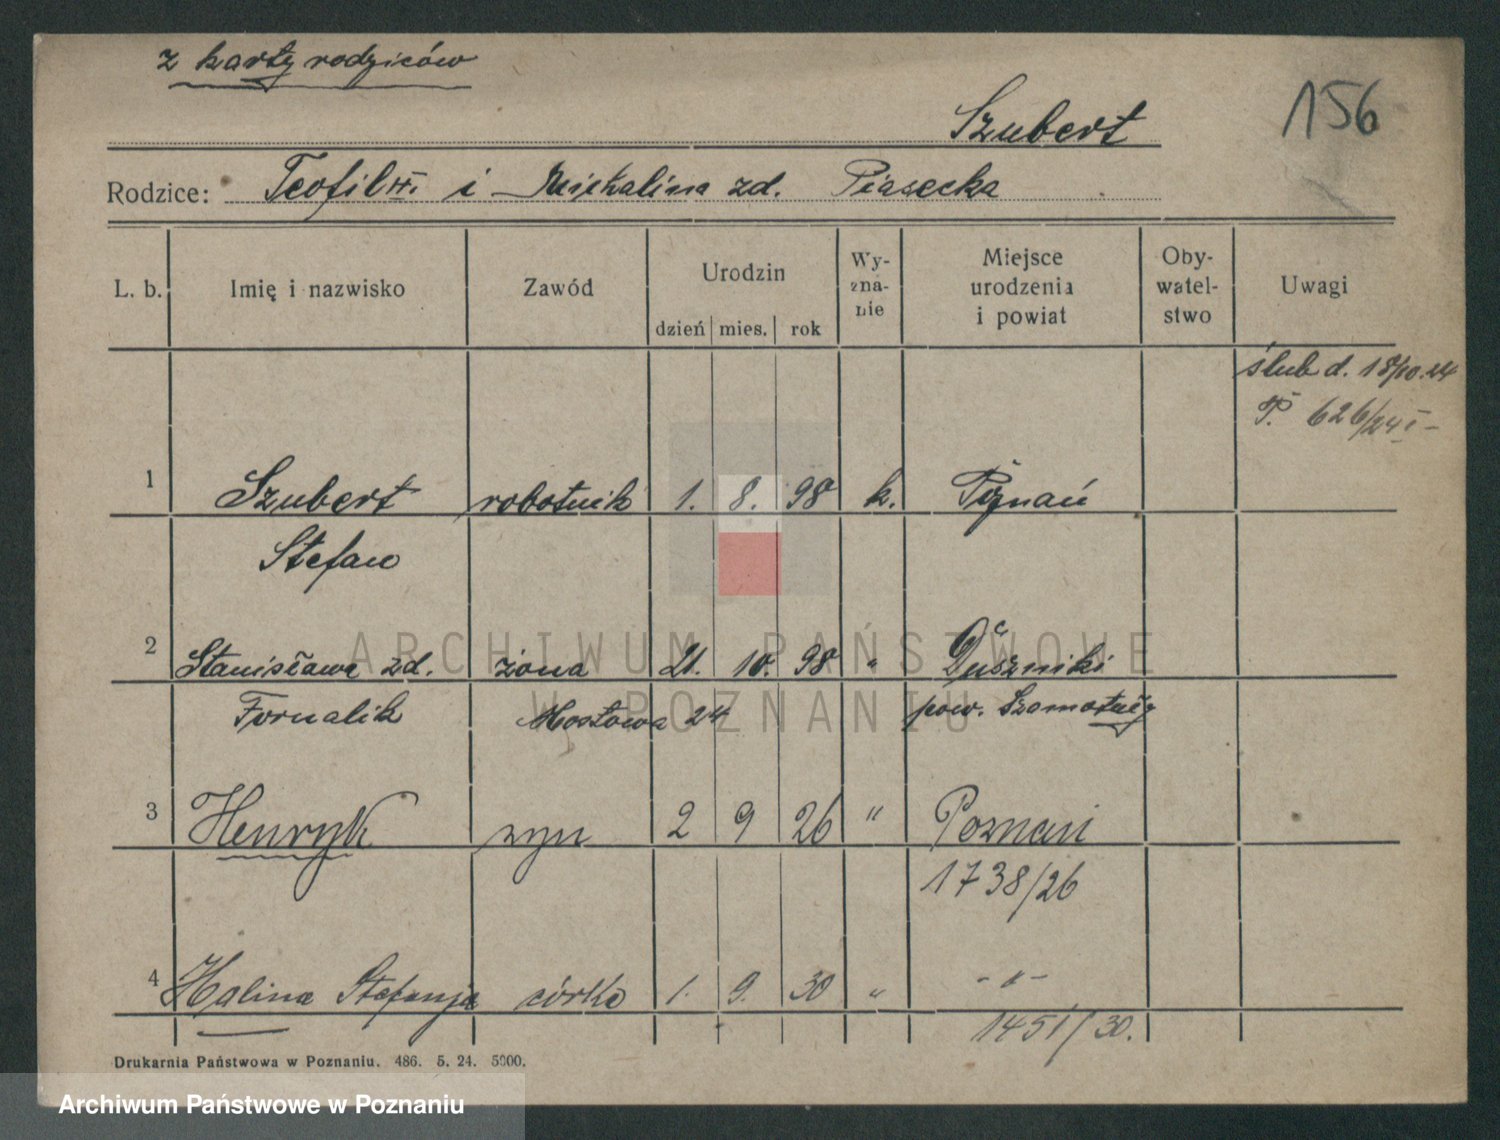 z karty rodziców
156
Szubert
Rodzice: Teofil i Michalina zd. Piasecka
L. b. Imię i nazwisko Zawód Urodzin dzień mies. rok Wy-zna-nie Miejsce urodzenia i powiat Oby-watel-stwo Uwagi
ślub d. 18/10.24
626/24 I
1 Szubert robotnik 1. 8. 98 k. Poznań
Stefan
2 Stanisława zd. żona 21. 10. 98 " Duszniki
Fornalik Mostowa 24 pow. Szamotuły
3 Henryk syn 2 9 26 " Poznań
1738/26
4 Halina Stefanja córka 1. 9. 30 " - " -
1451/30.
Drukarnia Państwowa w Poznaniu. 486. 5. 24. 5000.
ARCHIWUM PAŃSTWOWE
W POZNANIU
Archiwum Państwowe w Poznaniu